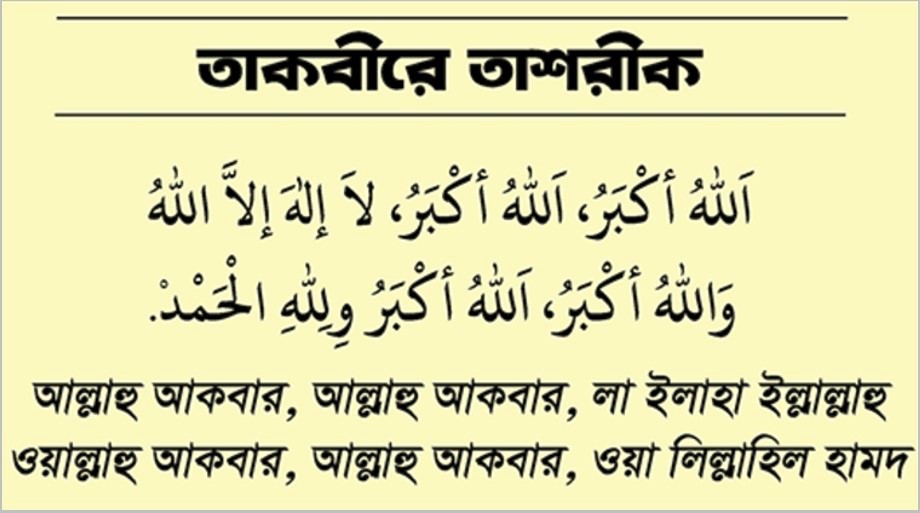 তাকবীরে তাশরীক
اَللهُ أَكْبَرُ، اَللهُ أَكْبَرُ، لاَ إِلٰهَ إِلاَّ اللهُ
وَاللهُ أَكْبَرُ، اَللهُ أَكْبَرُ وِلِلّٰهِ الْحَمْدْ.
আল্লাহু আকবার, আল্লাহু আকবার, লা ইলাহা ইল্লাল্লাহু
ওয়াল্লাহু আকবার, আল্লাহু আকবার, ওয়া লিল্লাহিল হামদ